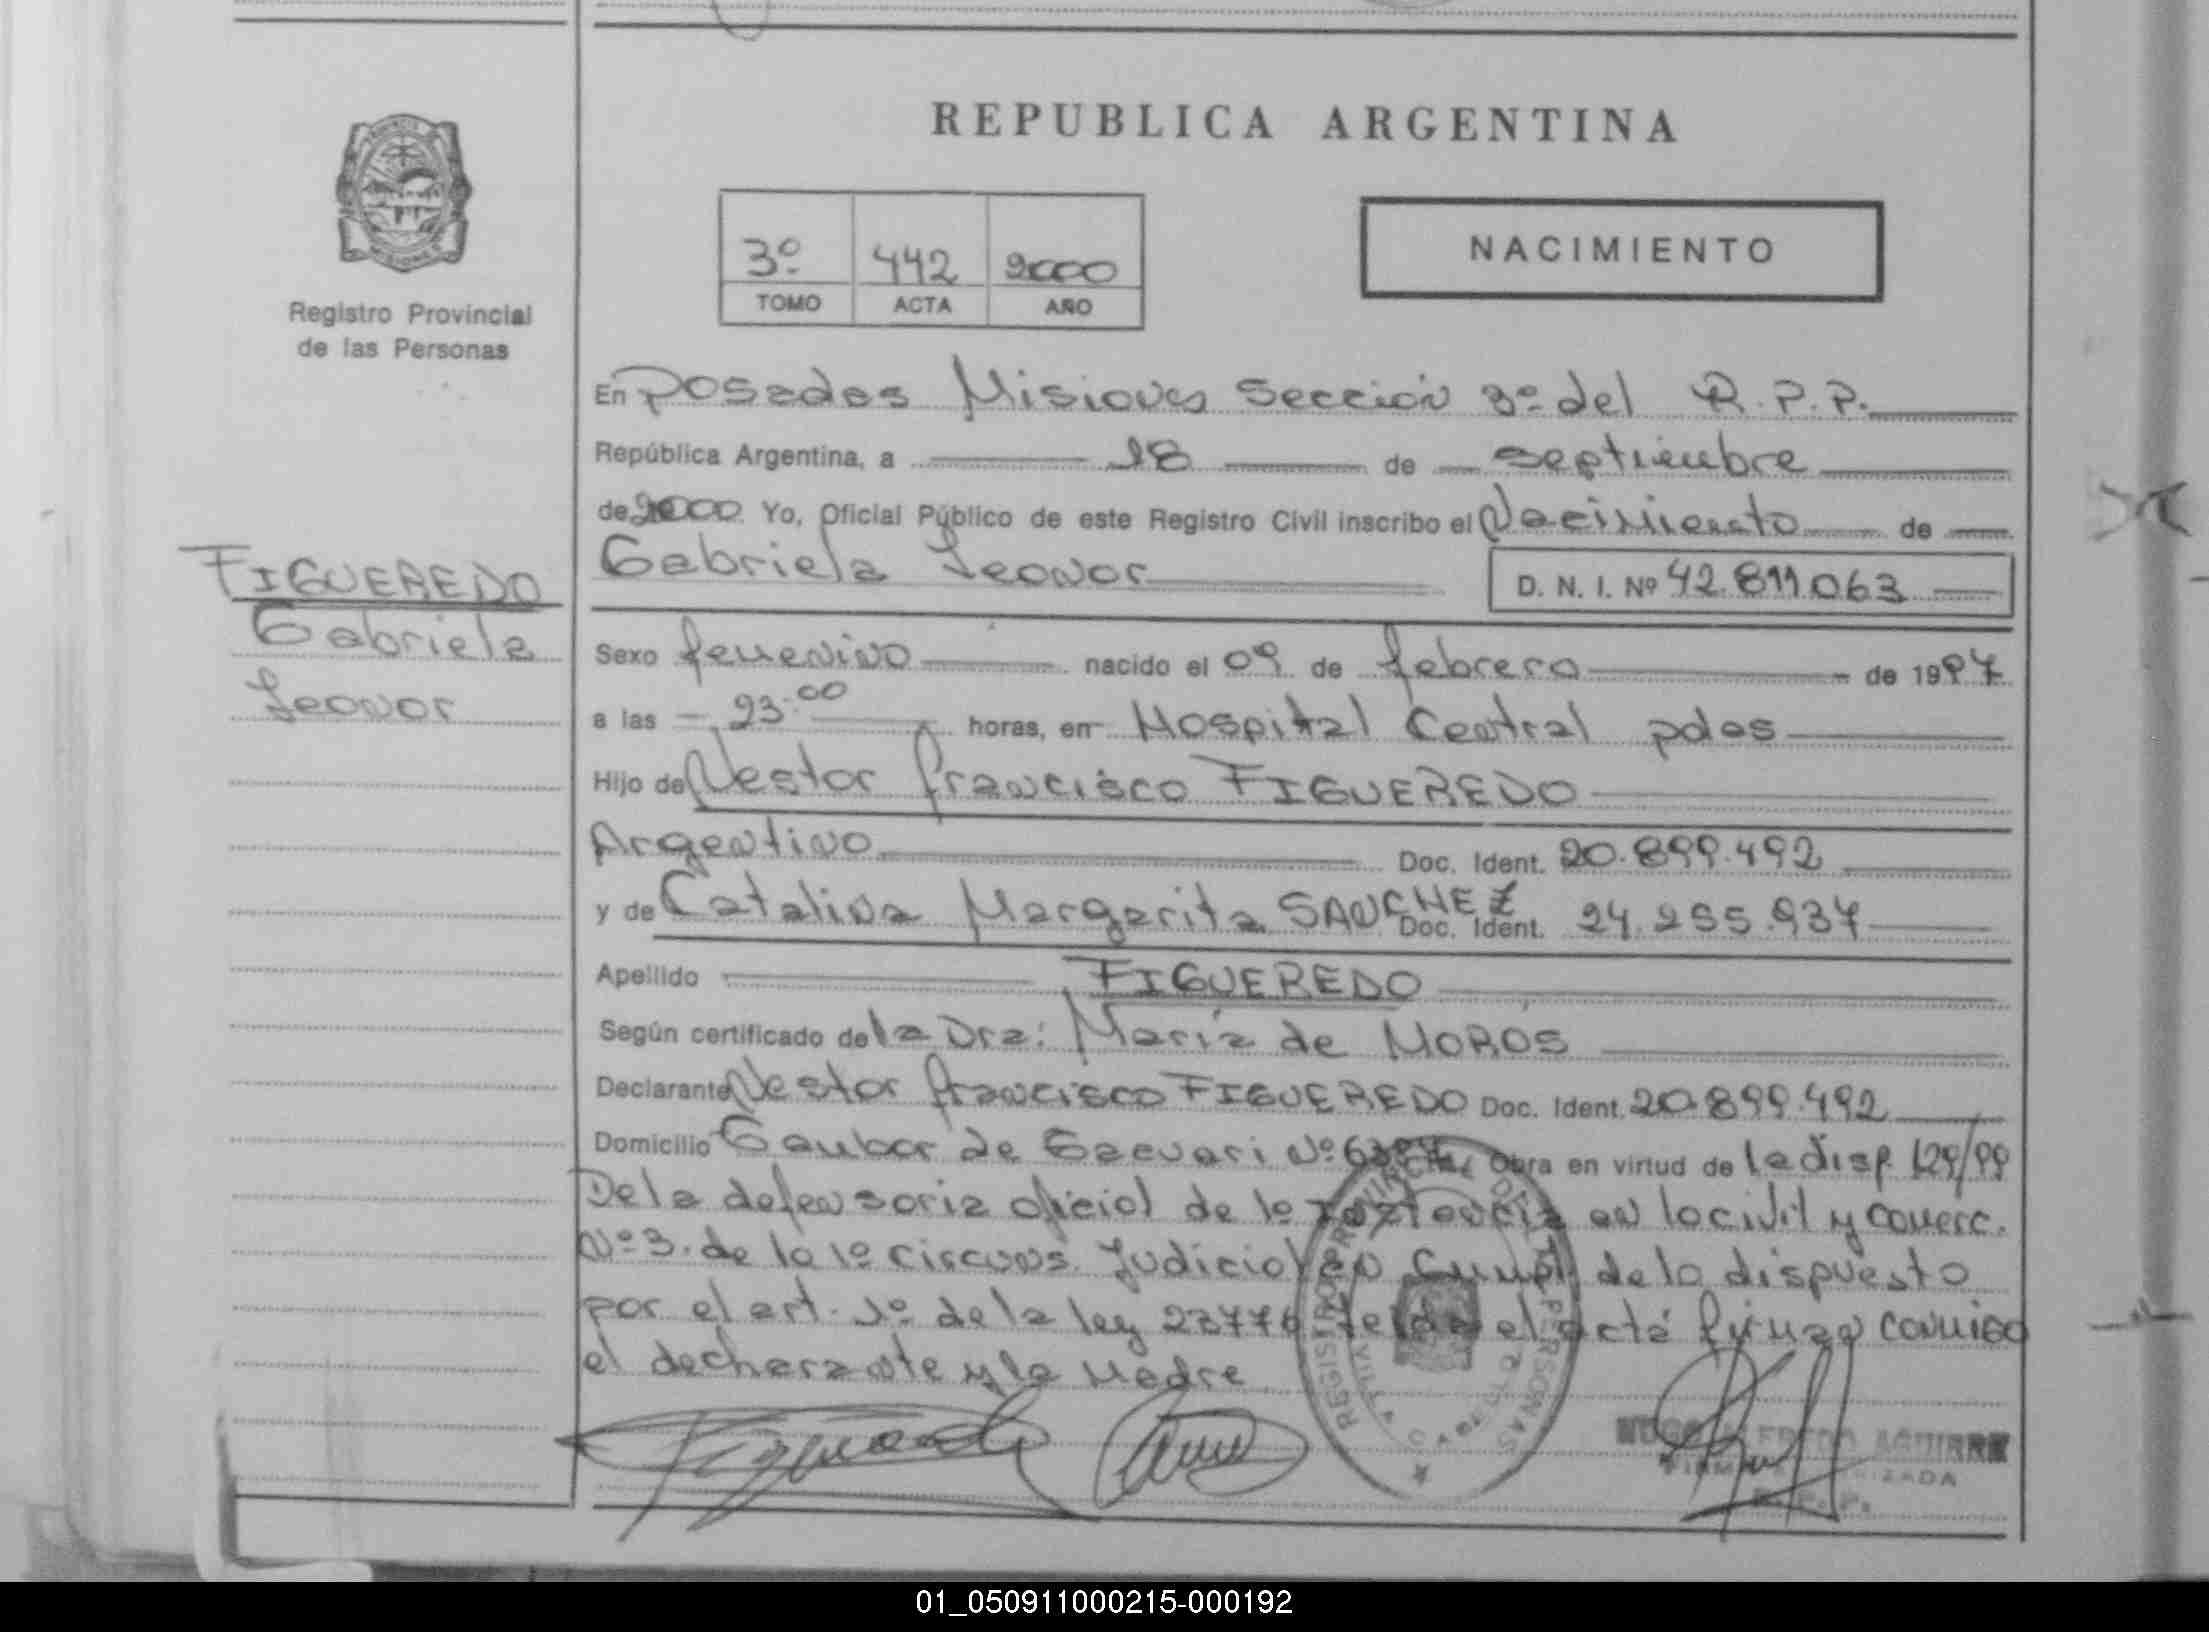 REPUBLICA ARGENTINA
3º 442 2000
TOMO ACTA AÑO
NACIMIENTO
Registro Provincial
de las Personas
FIGUEREDO
Gabriela
Leonor
En Posadas Misiones Sección 3º del R.P.P.
República Argentina, a 18 de septiembre
de 2000 Yo, Oficial Público de este Registro Civil inscribo el Nacimiento de
Gabriela Leonor
D. N. I. Nº 42.811.063
Sexo femenino nacido el 09 de febrero de 1997
a las 23:00 horas, en Hospital Central pdas
Hijo de Nestor francisco FIGUEREDO
Argentino Doc. Ident. 20.899.492
y de Catalina Margarita SANCHEZ Doc. Ident. 24.255.937
Apellido FIGUEREDO
Según certificado de la Dra: María de MOROS
Declarante Nestor francisco FIGUEREDO Doc. Ident. 20.899.492
Domicilio de Nº Obra en virtud de la disp. 129/99
De la defensoria oficial de 1º Instancia en lo civil y comerc.
Nº 3. de la 1º circuns. Judicial en Cumpl de lo dispuesto
por el art. 1º de la ley 23776 el acta firman conmigo
el y la Madre
REGISTRO PROVINCIAL DE LAS PERSONAS
AGUIRRE
R. P. P.
01_050911000215-000192